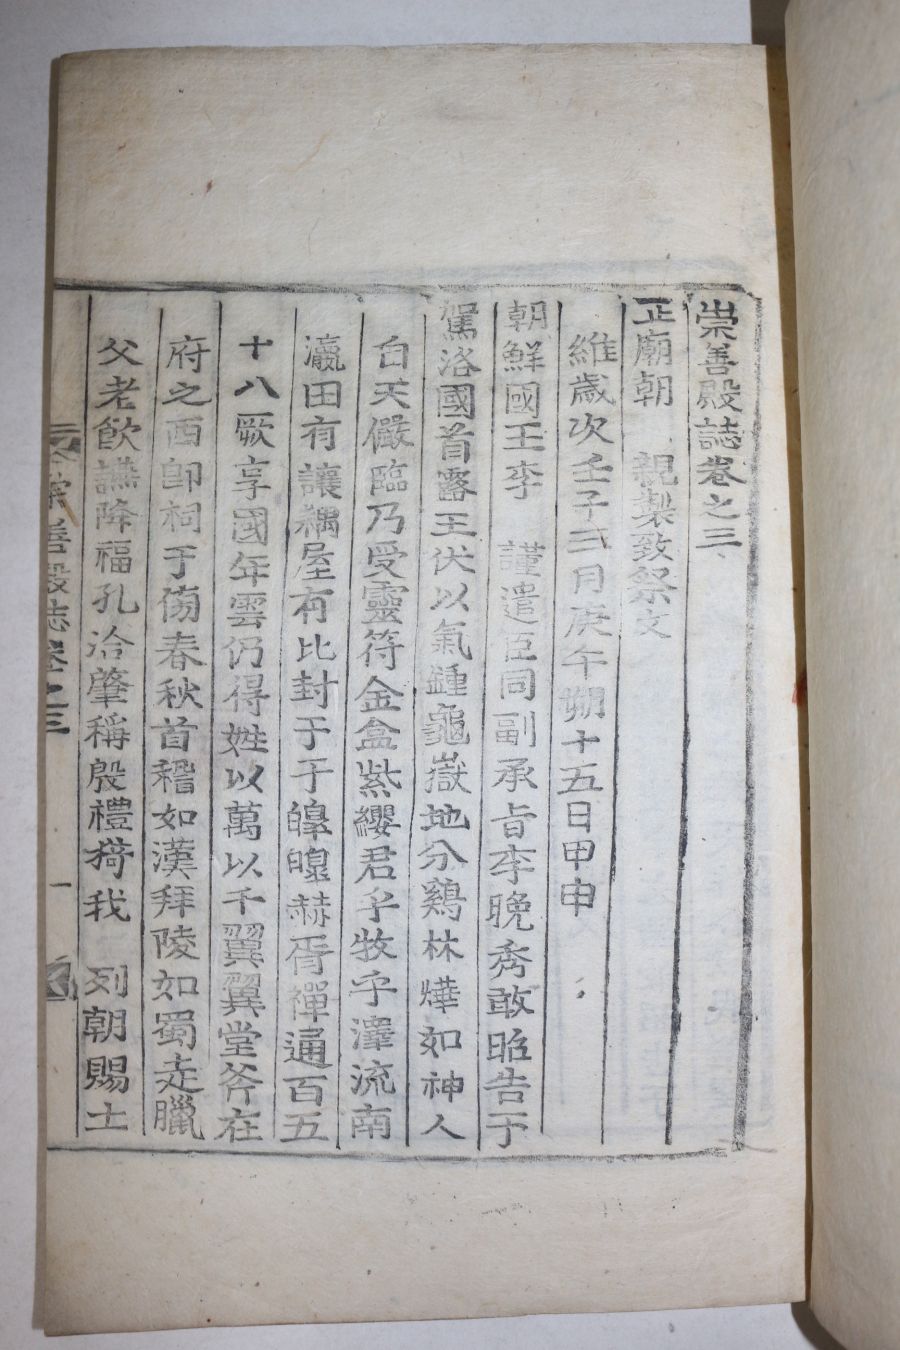 崇善殿誌卷之三
正廟朝 親製致祭文
維歲次壬子三月庚午朔十五日甲申
朝鮮國王李 謹遣臣同副承旨李晚秀敢昭告于
駕洛國首露王伏以氣鍾龜嶽地分鷄林燁如神人
自天儼臨乃受靈符金盒紫纓君乎牧乎澤流南
瀛田有讓耦屋有比封于于皥皥赫胥禪通百五
十八厥享國年雲仍得姓以萬以千翼翼堂斧在
府之西卽祠于傍春秋首稽如漢拜陵如蜀走臘
父老飮讌降福孔洽肇稱殷禮猗我 列朝賜土
崇善殿誌 卷之三 一